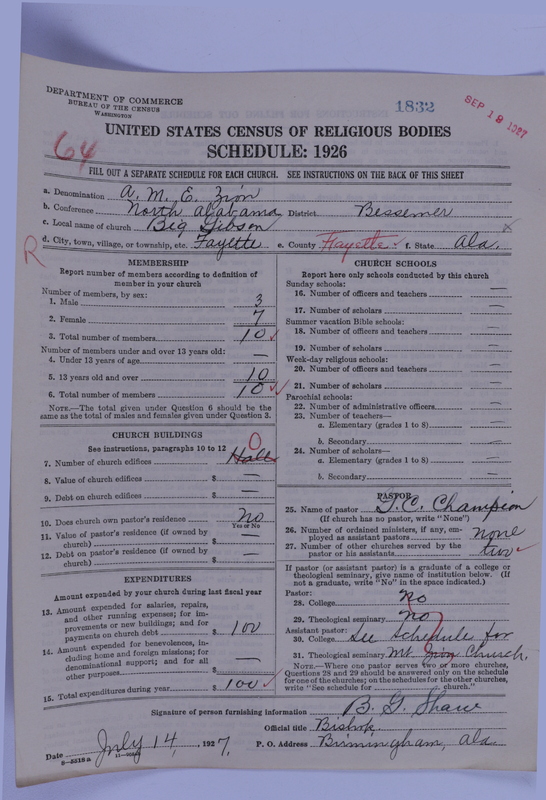 DEPARTMENT OF COMMERCE
BUREAU OF THE CENSUS
WASHINGTON
1832
SEP 19 1927
64
UNITED STATES CENSUS OF RELIGIOUS BODIES
SCHEDULE: 1926
FILL OUT A SEPARATE SCHEDULE FOR EACH CHURCH. SEE INSTRUCTIONS ON THE BACK OF THIS SHEET
a. Denomination A. M. E. Zion
b. Conference North Alabama District Bessemer
c. Local name of church Big Gibson
R
d. City, town, village, or township, etc. Fayette e. County Fayette f. State Ala.
MEMBERSHIP
Report number of members according to definition of
member in your church
Number of members, by sex:
1. Male 3
2. Female 7
3. Total number of members 10 ✓
Number of members under and over 13 years old:
4. Under 13 years of age —
5. 13 years old and over 10
6. Total number of members 10 ✓
NOTE.—The total given under Question 6 should be the
same as the total of males and females given under Question 3.
CHURCH BUILDINGS
See instructions, paragraphs 10 to 12
7. Number of church edifices Hall 0
8. Value of church edifices $ —
9. Debt on church edifices $ —
10. Does church own pastor's residence No
Yes or No
11. Value of pastor's residence (if owned by
church) $ —
12. Debt on pastor's residence (if owned by
church) $ —
EXPENDITURES
Amount expended by your church during last fiscal year
13. Amount expended for salaries, repairs,
and other running expenses; for im-
provements or new buildings; and for
payments on church debt $ 100
14. Amount expended for benevolences, in-
cluding home and foreign missions; for
denominational support; and for all
other purposes $ —
15. Total expenditures during year $ 100 ✓
CHURCH SCHOOLS
Report here only schools conducted by this church
Sunday schools:
16. Number of officers and teachers —
17. Number of scholars —
Summer vacation Bible schools:
18. Number of officers and teachers —
19. Number of scholars —
Week-day religious schools:
20. Number of officers and teachers —
21. Number of scholars —
Parochial schools:
22. Number of administrative officers —
23. Number of teachers—
a. Elementary (grades 1 to 8) —
b. Secondary —
24. Number of scholars—
a. Elementary (grades 1 to 8) —
b. Secondary —
PASTOR
25. Name of pastor C. Champion
(If church has no pastor, write "None")
26. Number of ordained ministers, if any, em-
ployed as assistant pastors none
27. Number of other churches served by the
pastor or his assistants two ✓
If pastor (or assistant pastor) is a graduate of a college or
theological seminary, give name of institution below. (If
not a graduate, write "No" in the space indicated.)
Pastor:
28. College No
29. Theological seminary no
Assistant pastor:
30. College See Schedule for
31. Theological seminary Mt. Zion Church.
NOTE.—Where one pastor serves two or more churches,
Questions 28 and 29 should be answered only on the schedule
for one of the churches; on the schedules for the other churches,
write "See schedule for church."
Signature of person furnishing information B. G. Shaw
Official title Bishop.
Date July 14, 1927. P. O. Address Birmingham, Ala